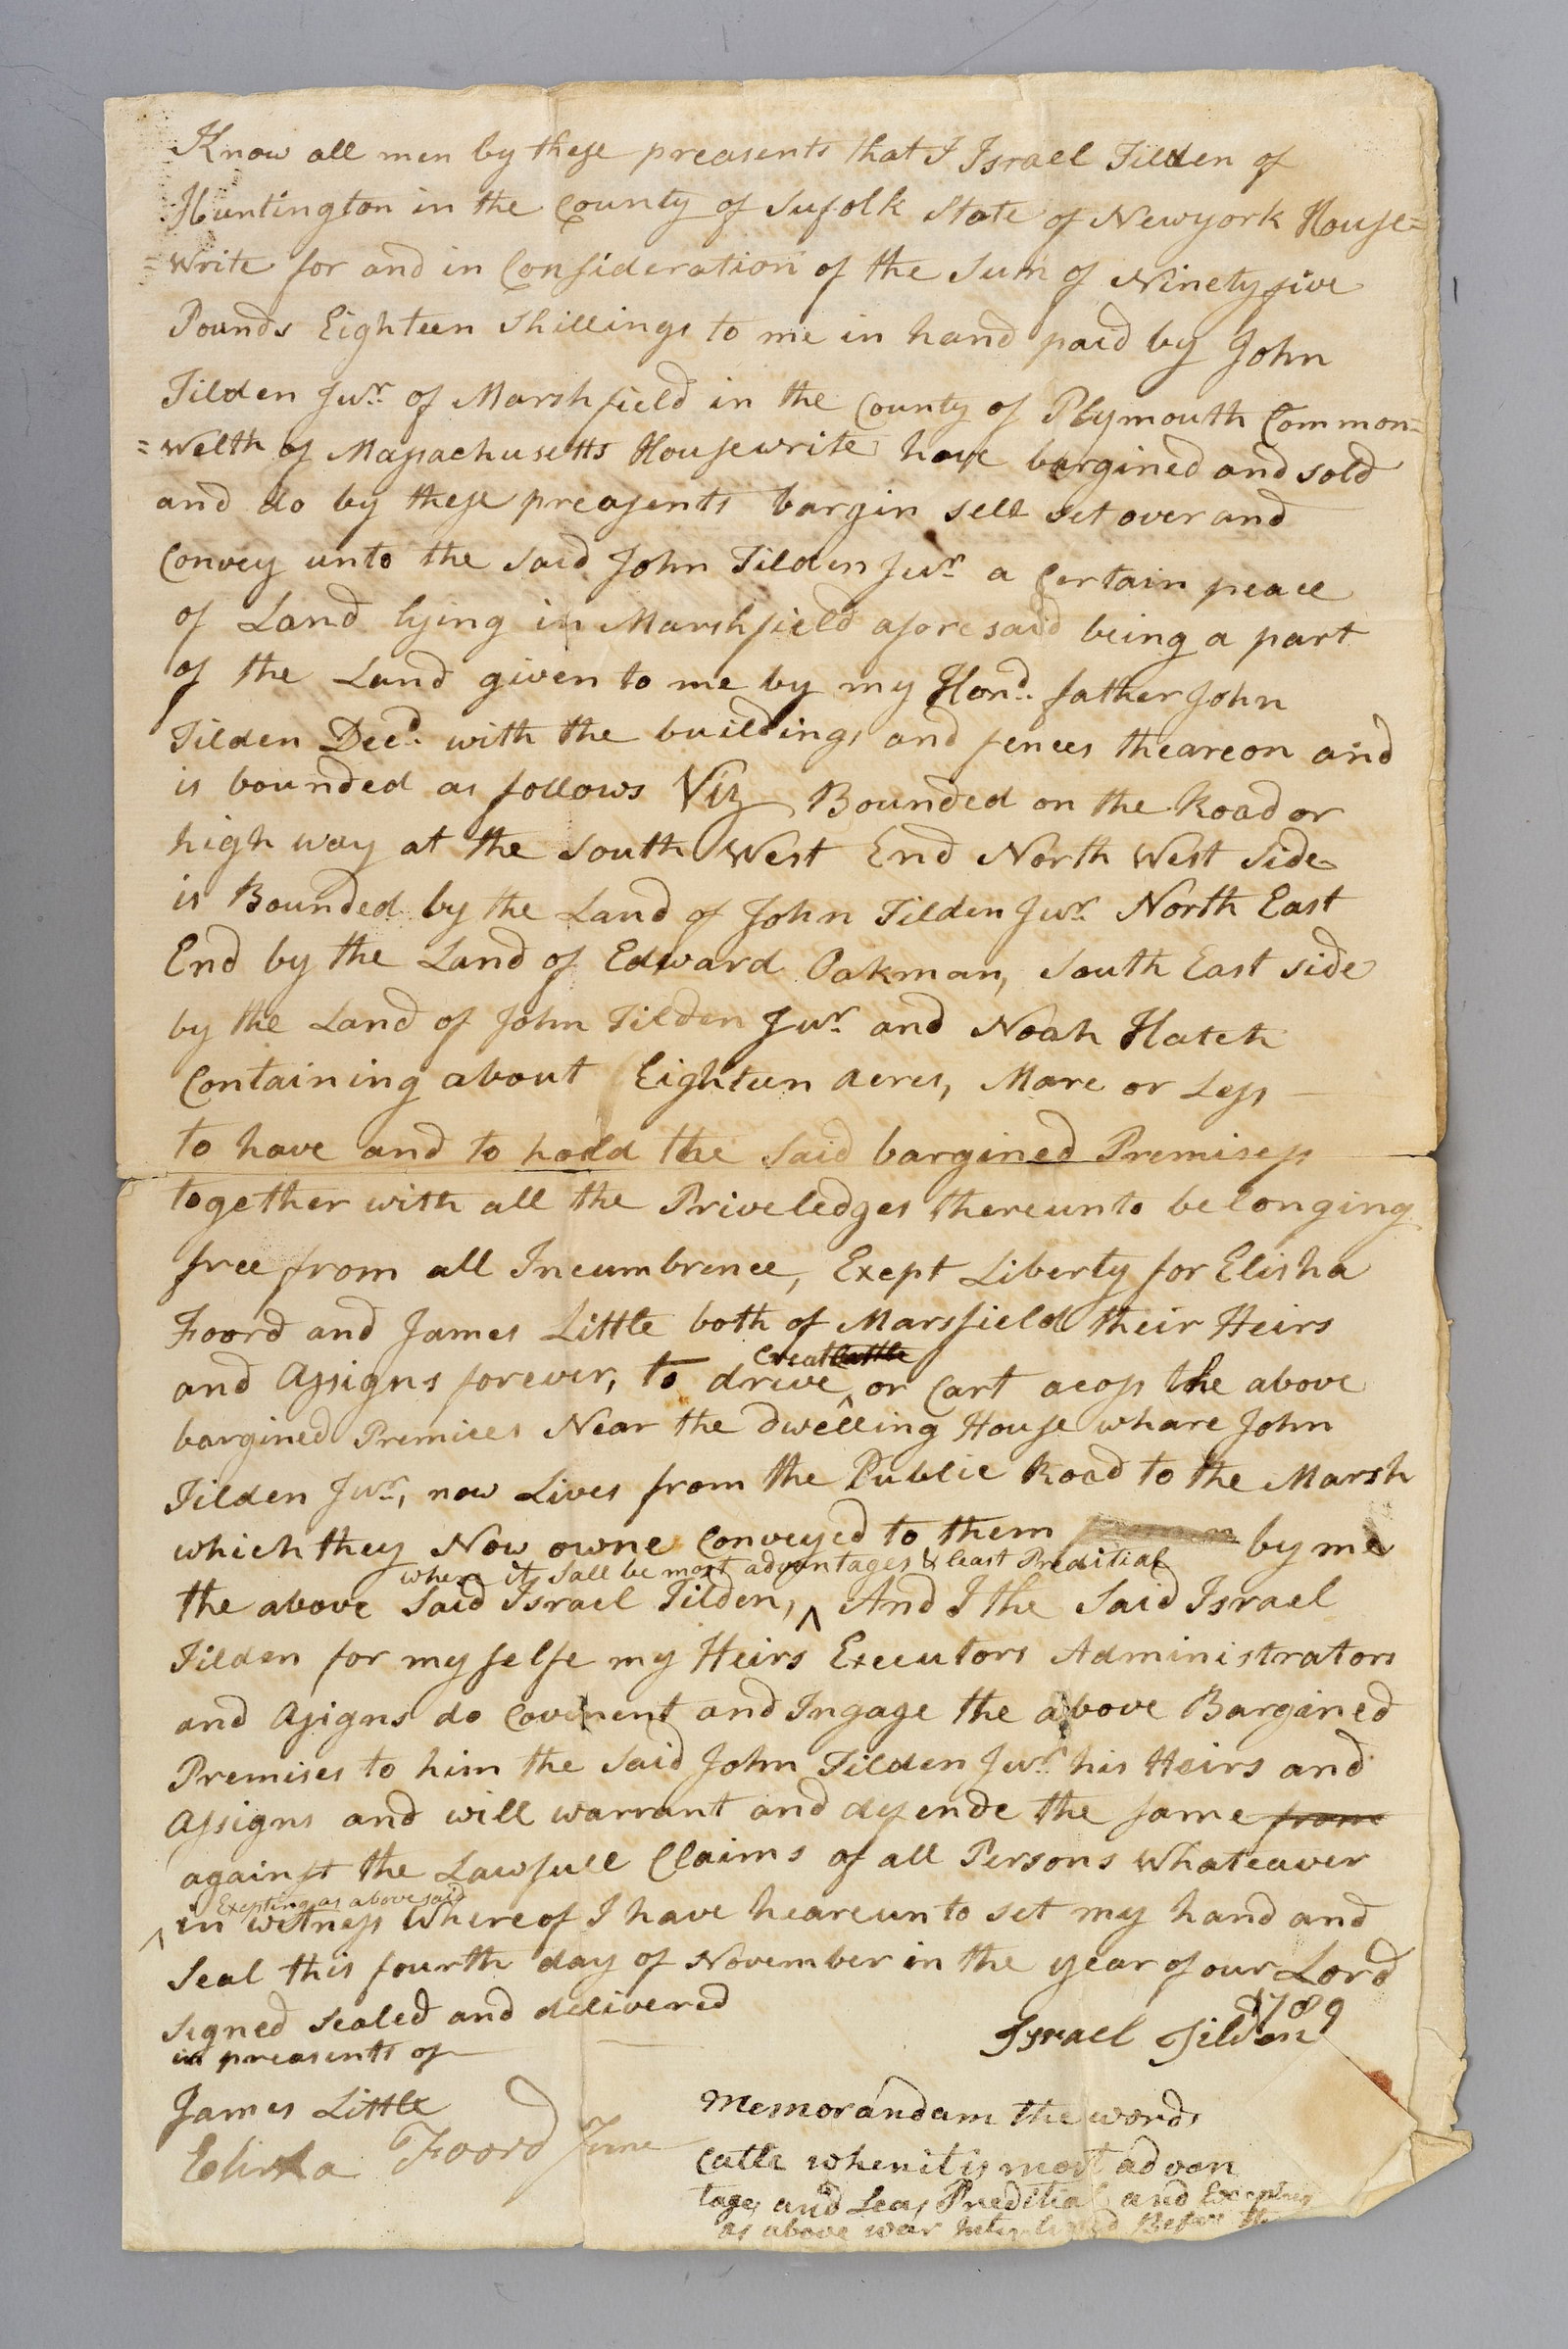 Know all men by these preasents that I Israel Tilden of
Huntington in the County of Sufolk State of Newyork House=
=write for and in Consideration of the Sum of Ninety five
Pounds Eighteen Shillings to me in hand paid by John
Tilden Junr. of Marshfield in the County of Plymouth Common=
=welth of Massachusetts Housewrite have bargined and sold
and do by these preasents bargin sell set over and
Convey unto the said John Tilden Junr a Certain peace
of Land lying in Marshfield aforesaid being a part
of the Land given to me by my Hond. father John
Tilden Decd. with the buildings and fences theareon and
is bounded as follows Viz Bounded on the Road or
high way at the South West End North West Side
is Bounded by the Land of John Tilden Junr. North East
End by the Land of Edward Oakman, South East side
by the Land of John Tilden Junr. and Noah Hatch
Containing about Eighteen Acres, More or Less
to have and to hold the Said bargined Premisess
together with all the Priveledges thereunto belonging
free from all Incumbrence, Exept Liberty for Elisha
Foord and James Little both of Marsfield their Heirs
Cattle
and Assigns forever, to drive ^ or Cart acoss the above
bargined Premices Near the dwelling House whare John
Tilden Junr., now Lives from the Public Road to the Marsh
which they Now owne Conveyed to them by me
where it Sall be most advantages & least Preditial
the above Said Israel Tilden, ^ And I the Said Israel
Tilden for my selfe my Heirs Executors Administrators
and Asigns do Covenent and Ingage the above Bargined
Premises to him the Said John Tilden Junr. his Heirs and
Assigns and will warrant and defende the same from
against the Lawfull Claims of all Persons Whateaver
Exepting as above said
^ in witness Whereof I have heareunto set my hand and
Seal this fourth day of November in the year of our Lord
1789
signed sealed and delivered
in preasents of
Israel Tilden
James Little
Elisha Foord June
Memorandam the words
Catle when it is most advan
tages and Leas Preditial and Excepting
as above war Interlined Before